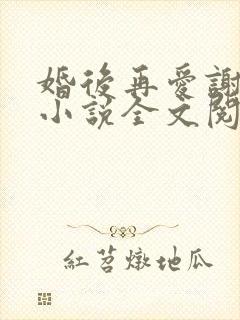 婚後再愛謝
小說全文閱
紅苕燉地瓜